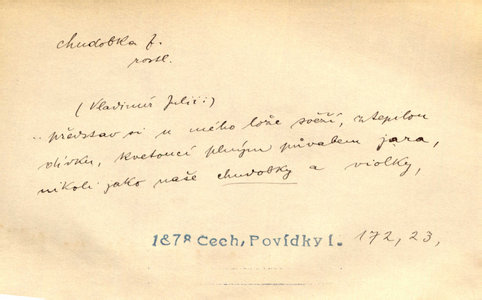 chudobka f.
rostl.
(Vladimír Jilií:)
představ si u mého lože svěží, ztepilou
dívku, kvetoucí plným půvabem jara,
nikoli jako naše chudobky a violky,
1878 Čech, Povídky I. 172, 23,